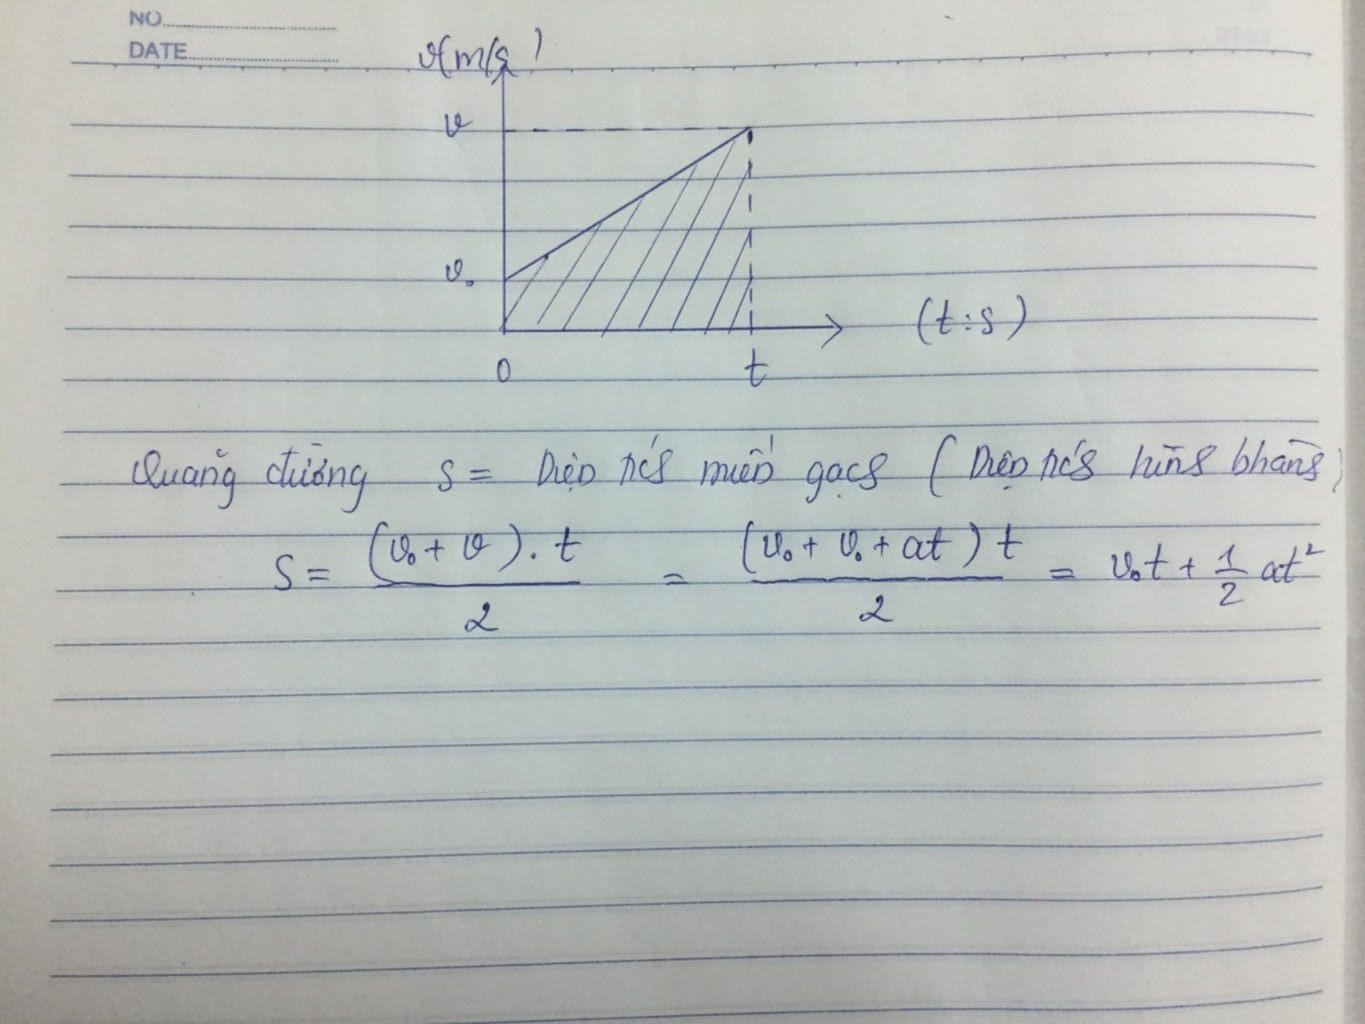 NO
DATE
v(m/s)
v
v₀
(t:s)
0 t
Quãng đường S = Diện tích miền gạch (Diện tích hình thang)
S = (v₀ + v).t / 2 = (v₀ + v₀ + at) t / 2 = v₀t + 1/2 at²